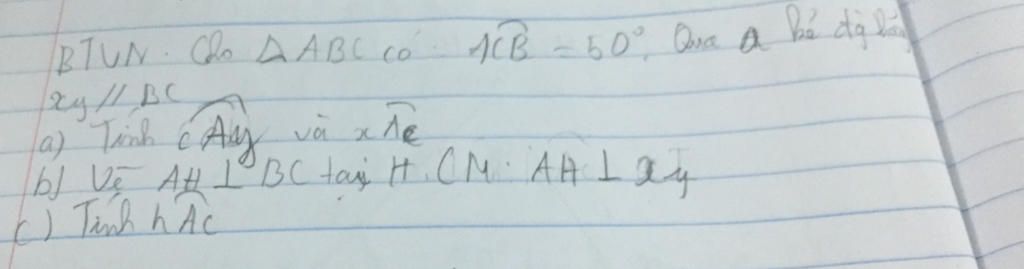 BTVN. Cho △ABC có ACB = 50°. Qua A kẻ đg
xy // BC
a) Tính cAy và xAc
b) Vẽ AH ⊥ BC tại H. CM: AH ⊥ xy
c) Tính hAc